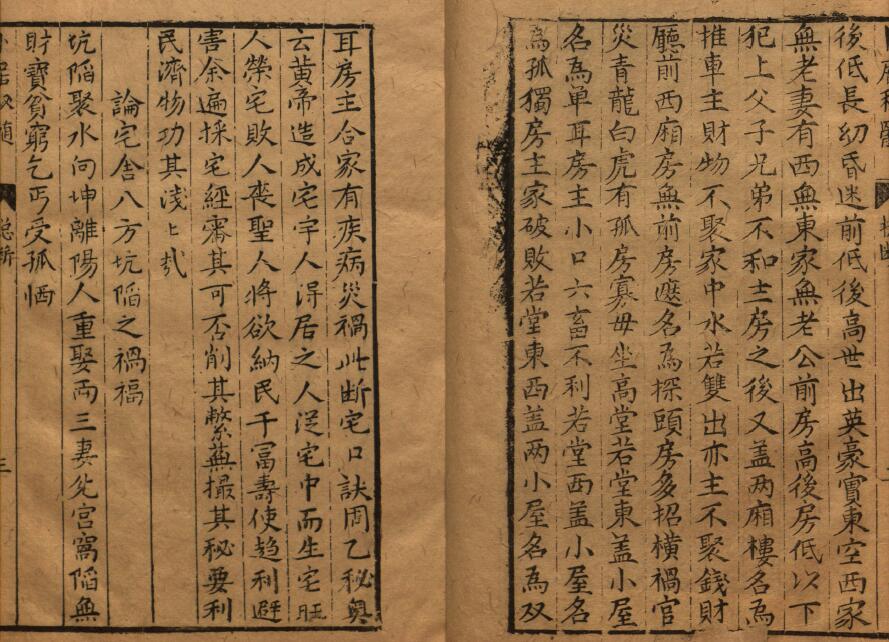 後低長幼昏迷前低後高世出英豪實東空西家
無老妻有西無東家無老公前房高後房低以下
犯上父子兄弟不和主房之後又蓋两廂樓名為
推車主財物不聚家中水若雙出亦主不聚錢財
廳前西廂房無前房應名為探頭房多招橫禍官
災青龍白虎有孤房寡母坐高堂若堂東盖小屋
名為单耳房主小口六畜不利若堂西盖小屋名
為孤獨房主家破敗若堂東西盖两小屋名為双
耳房主合家有疾病災禍此断宅口訣周乙秘奥
云黄帝造成宅宇人得居之人従宅中而生宅旺
人榮宅敗人喪聖人将欲納民于冨壽使趋利避
害余遍採宅經審其可否削其繁蕪撮其秘要利
民濟物功其淺上㢤
論宅舍八方坑陷之禍福
坑陷聚水向坤離陽人重娶両三妻兊宮窩陷無
財寶貧窮乞丐受孤恓
总断
三